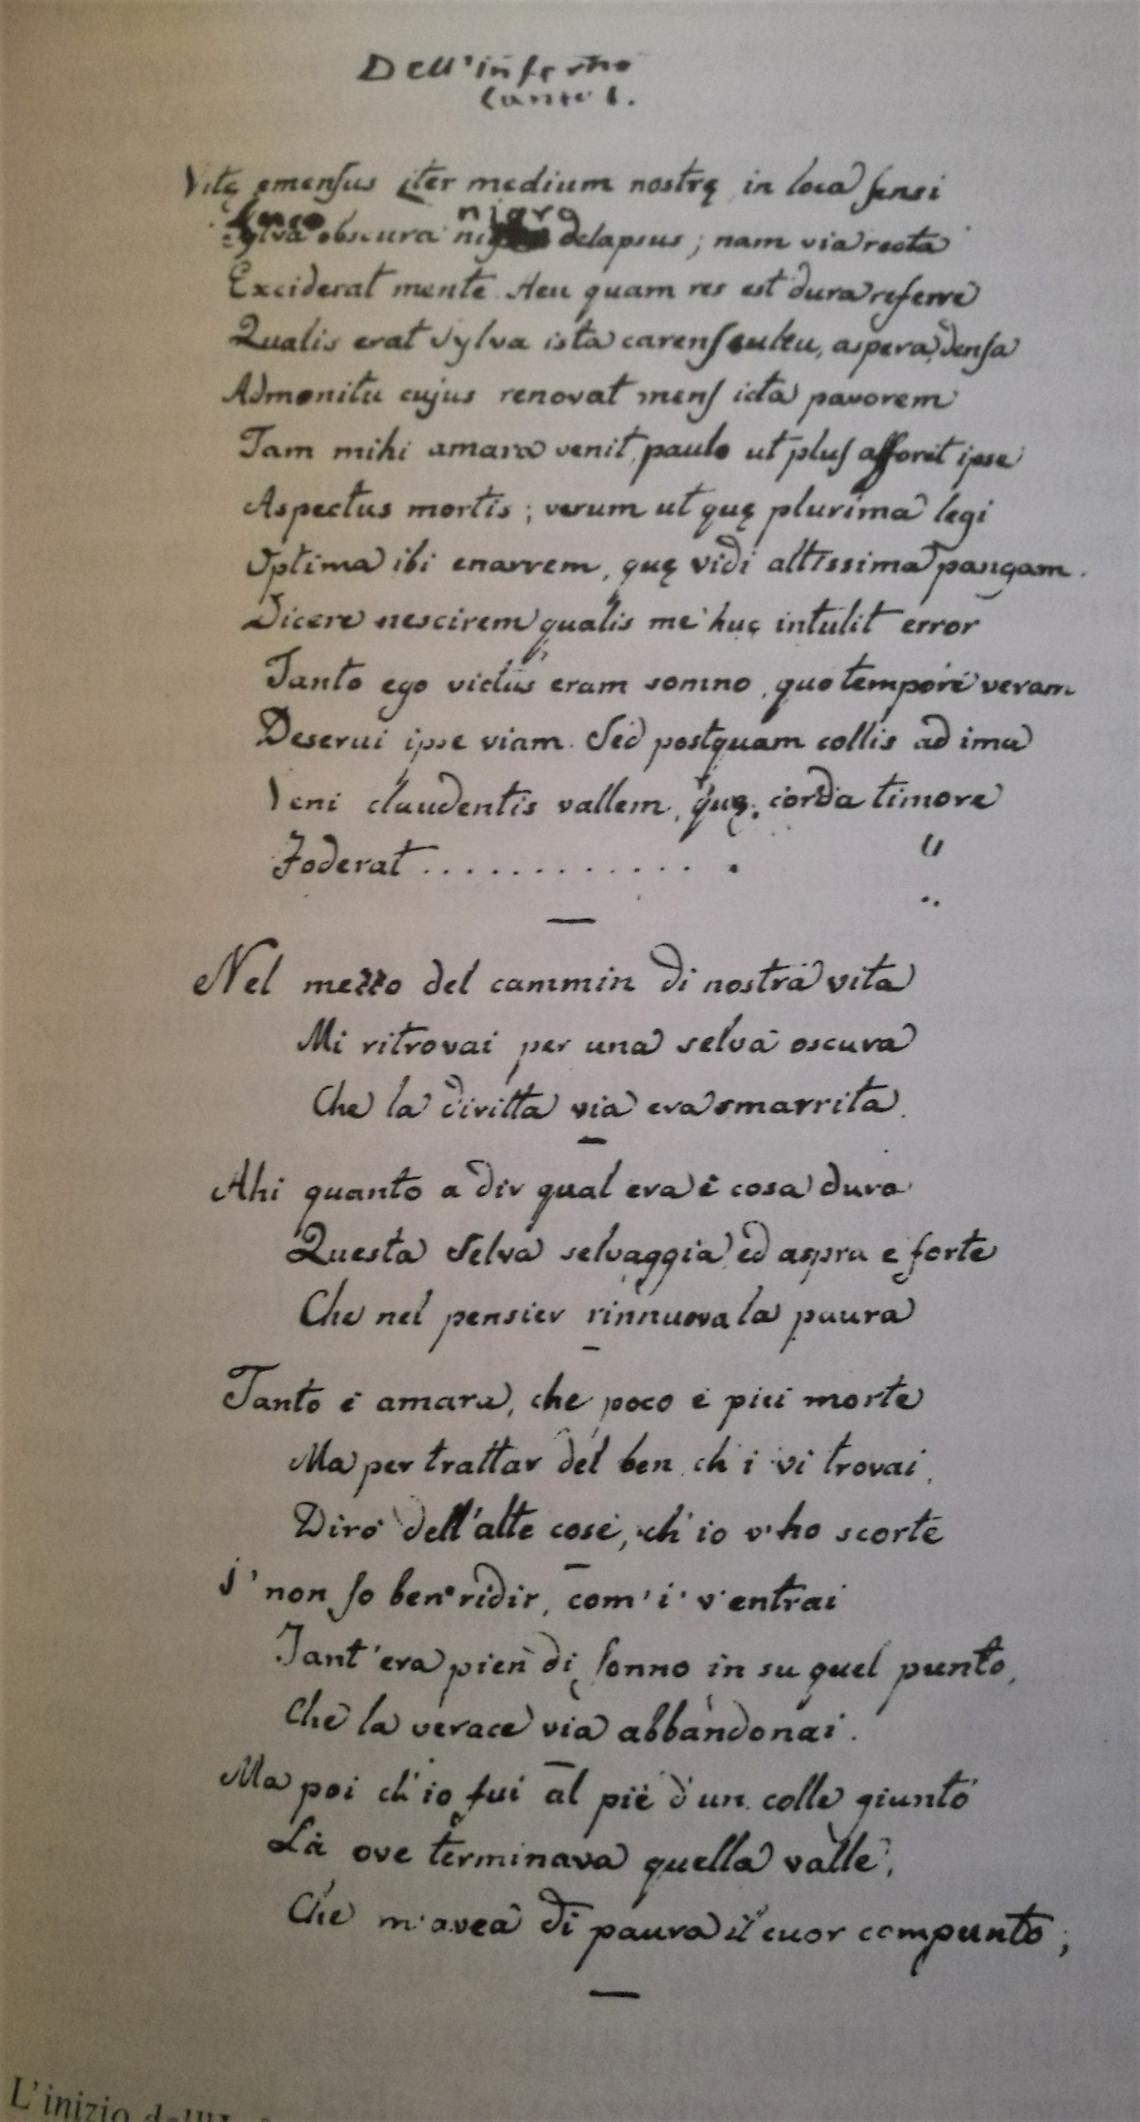 Dell'inferno
Canto 1.
Vitę emensus iter medium nostrę in loca sensi
nigro
Sylva obscura delapsus; nam via recta
Exciderat mente. Heu quam res est dura referre
Qualis erat sylva ista carens cultu, aspera, densa
Admonitu cujus renovat mens icta pavorem
Tam mihi amara venit, paulo ut plus afforet ipse
Aspectus mortis; verum ut quę plurima legi
Optima ibi enarrem, quę vidi altissima pangam.
Dicere nescirem qualis me huc intulit error
Tanto ego victus eram somno, quo tempore veram
Deserui ipse viam. Sed postquam collis ad ima
Veni claudentis vallem, quę corda timore
Foderat . . . . . . . . . . . . .
Nel mezzo del cammin di nostra vita
Mi ritrovai per una selva oscura
Che la diritta via era smarrita.
Ahi quanto a dir qual era è cosa dura
Questa Selva selvaggia ed aspra e forte
Che nel pensier rinnuova la paura
Tanto è amara, che poco è più morte
Ma per trattar del ben ch'i vi trovai,
Dirò dell'alte cose, ch'io v'ho scorte
I' non so ben ridir, com'i' v'entrai
Tant'era pien di sonno in su quel punto,
Che la verace via abbandonai.
Ma poi ch'io fui al piè d'un colle giunto
Là ove terminava quella valle,
Che m'avea di paura il cuor compunto;
L'inizio